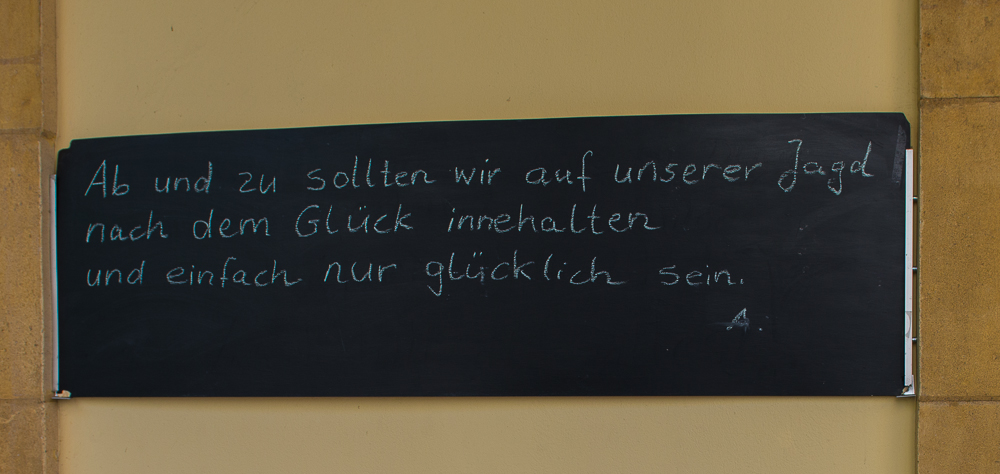 Ab und zu sollten wir auf unserer Jagd
nach dem Glück innehalten
und einfach nur glücklich sein.
A.